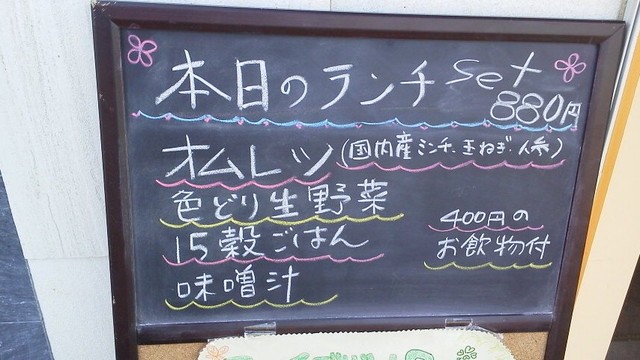 本日のランチ set
880円
オムレツ(国内産ミンチ、玉ねぎ・人参)
色どり生野菜
15穀ごはん
味噌汁
400円の
お飲物付